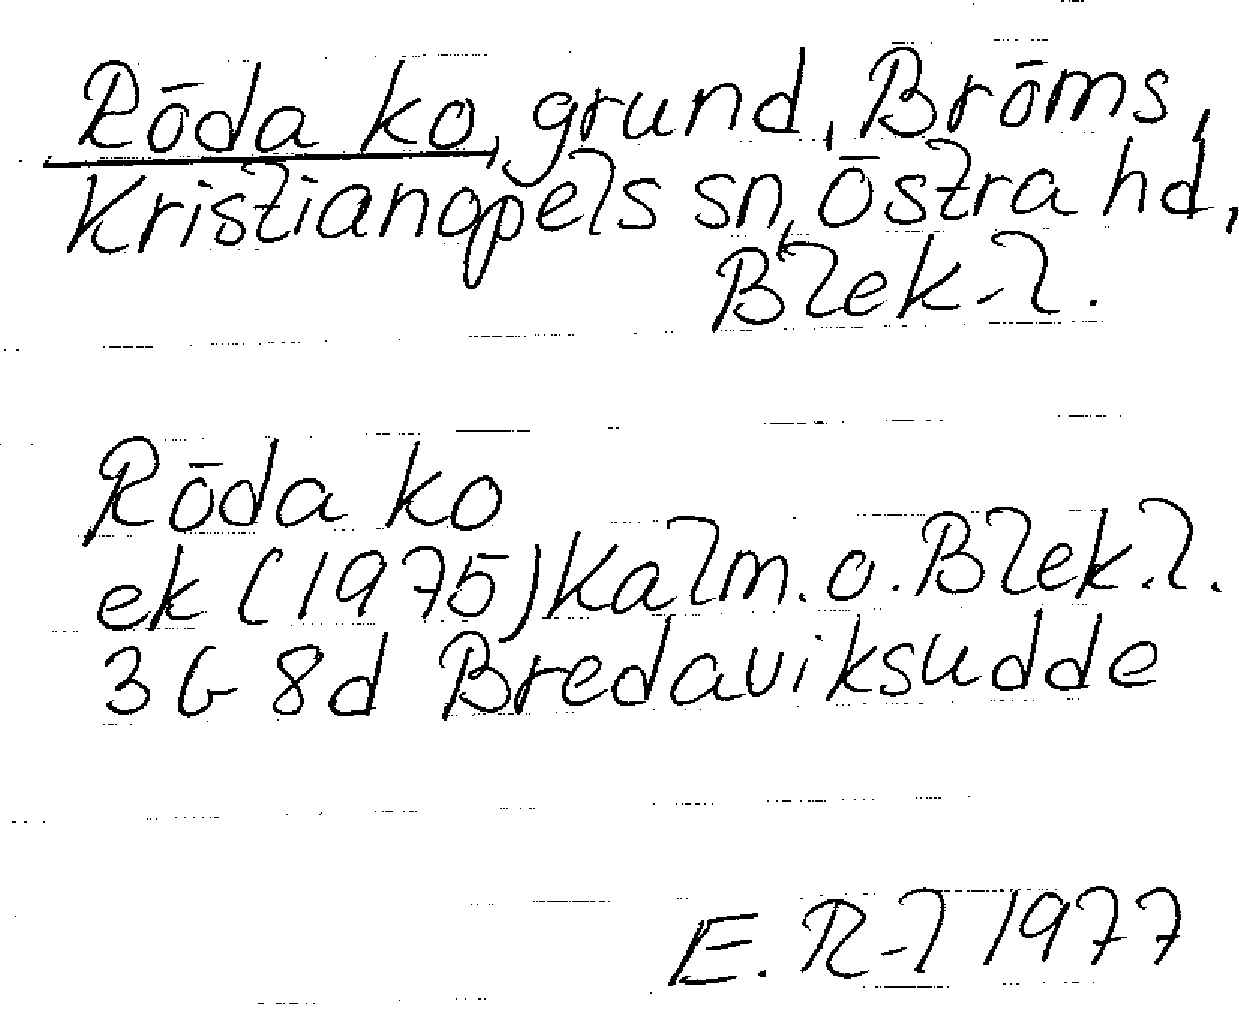 Röda ko, grund, Bröms,
Kristianopels sn, Östra hd,
Blek. l.
Röda ko
ek (1975) Kalm. o. Blek. l.
3 G 8d Bredaviksudde
E. R-T 1977